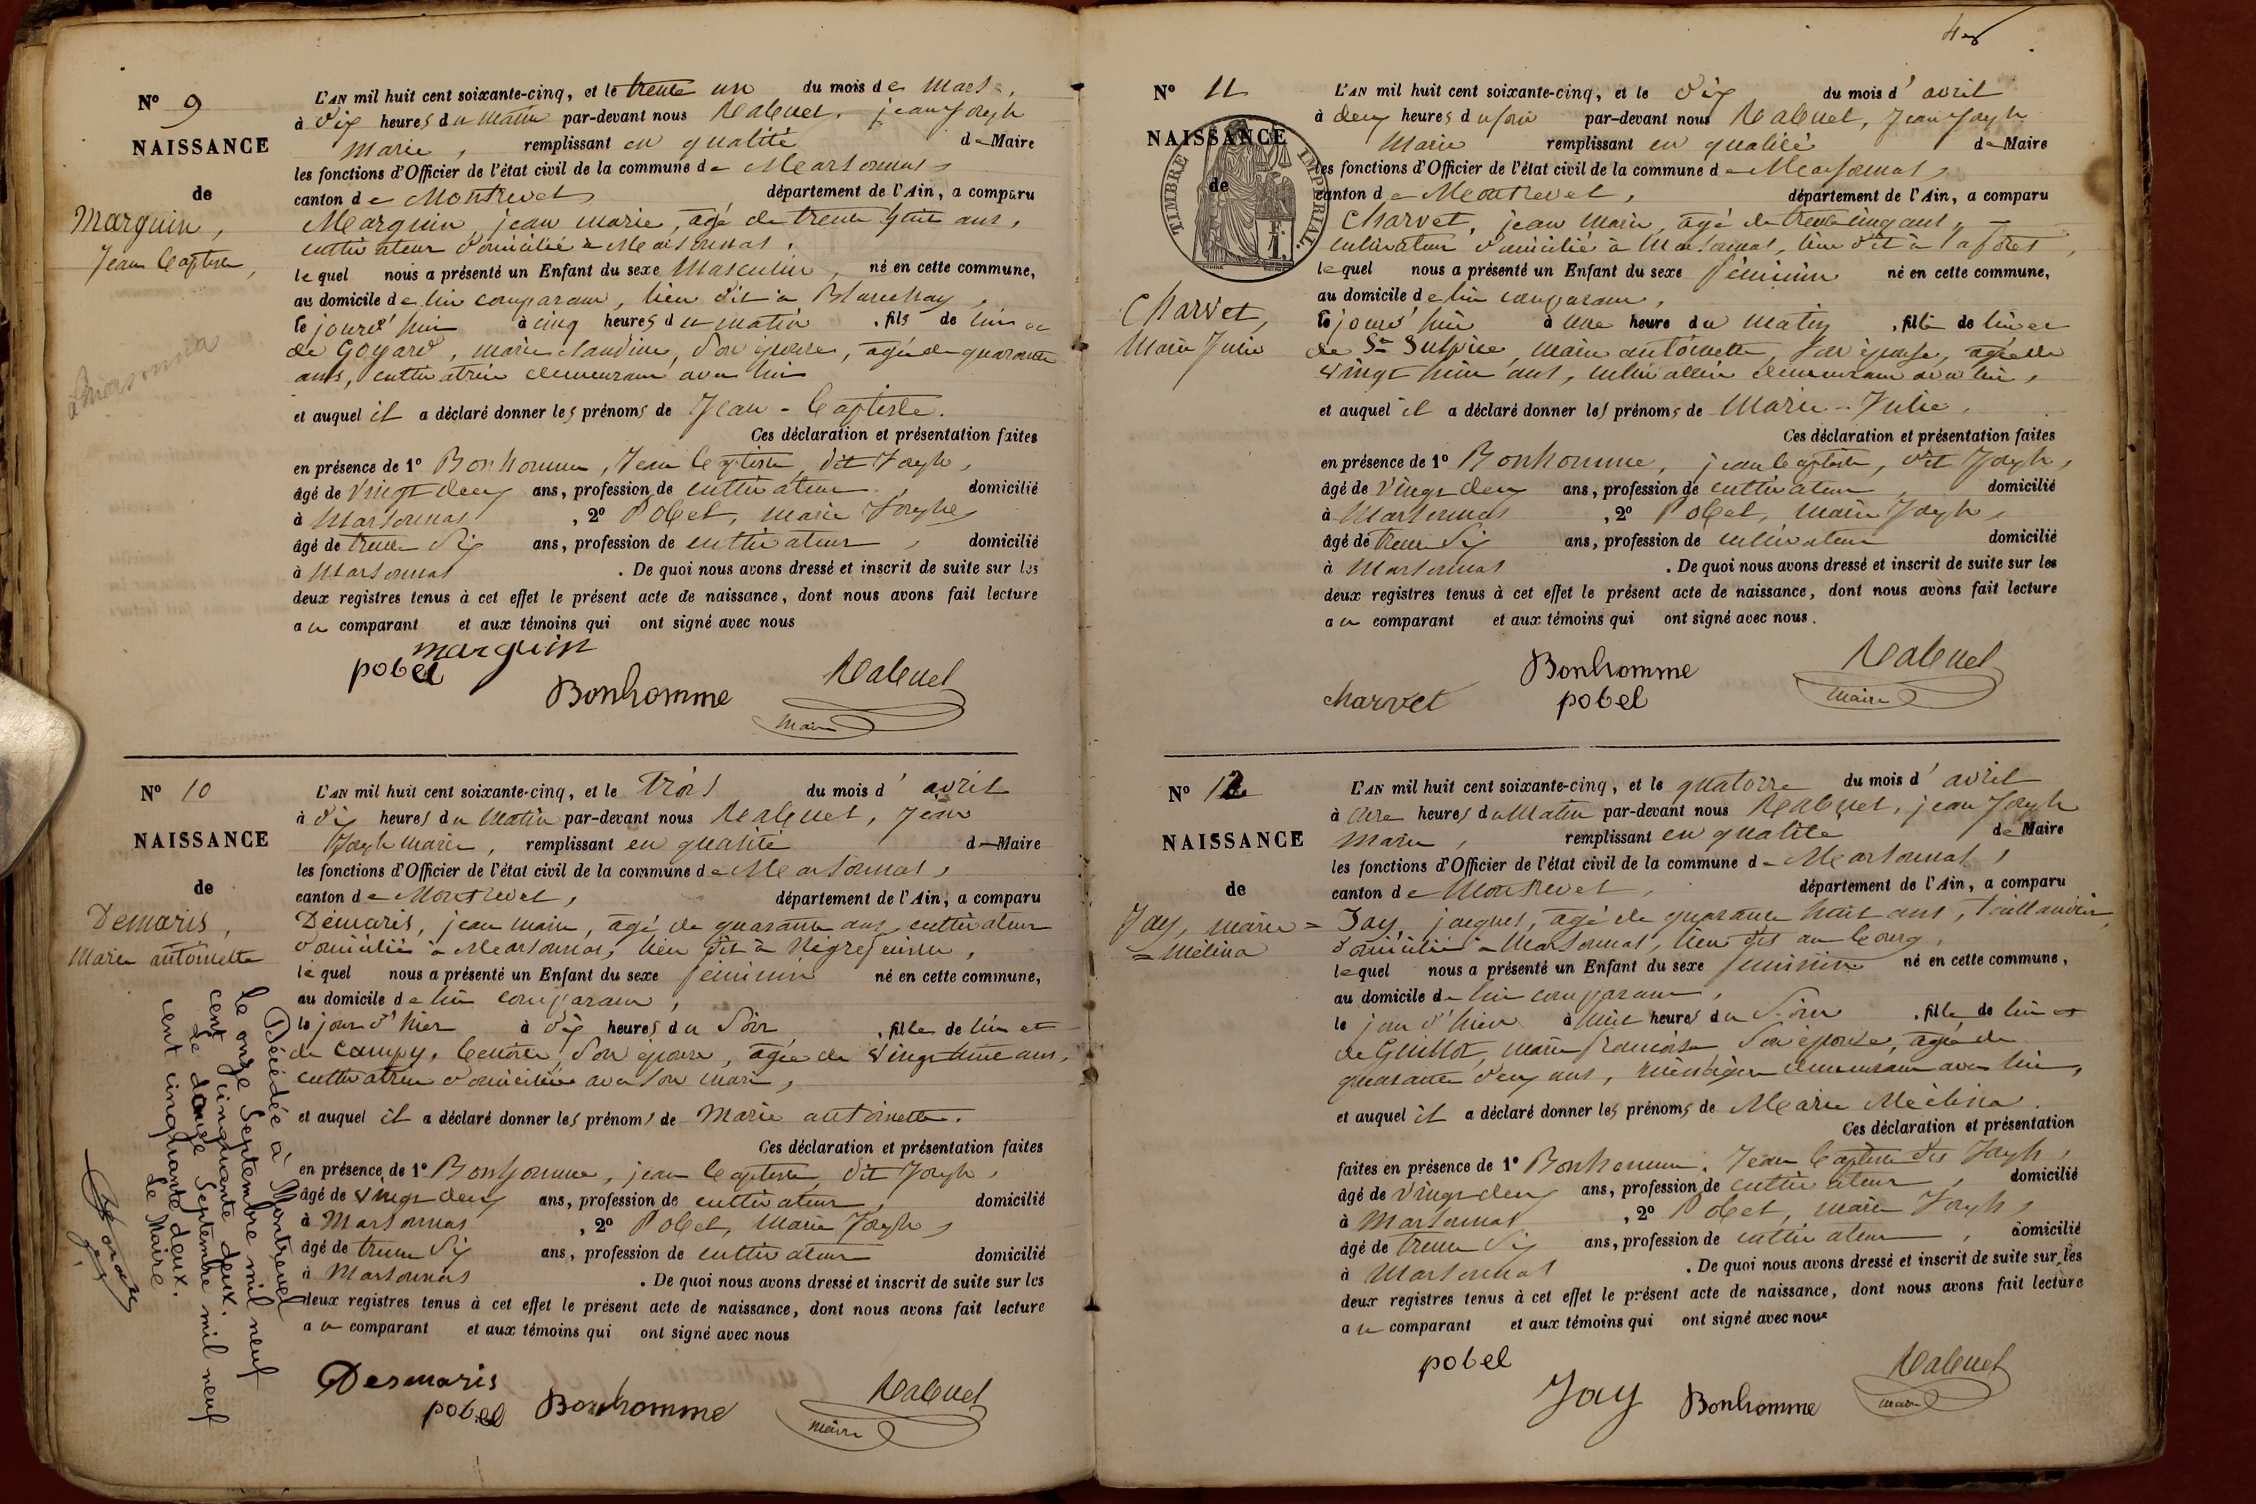 N° 9
NAISSANCE
de
Marguin,
Jean Baptiste,
L'AN mil huit cent soixante-cinq, et le trente un du mois de Mars,
à dix heures du Matin par-devant nous Rabuel, jean Joseph
Marie, remplissant en qualité de Maire
les fonctions d'Officier de l'état civil de la commune de Marsonnas,
canton de Montrevel, département de l'Ain, a comparu
Marguin, jean marie, agé de trente huit ans,
cultivateur domicilié à Marsonnas,
lequel nous a présenté un Enfant du sexe Masculin, né en cette commune,
au domicile de lui comparant, lieu dit à Blanchay,
le jourd'hui à cinq heures du matin, fils de lui et
de Goyard, marie claudine, son épouse, agée de quarante
ans, cultivatrice demeurant avec lui
et auquel il a déclaré donner les prénoms de Jean-Baptiste.
Ces déclaration et présentation faites
en présence de 1° Bonhomme, Jean Baptiste, dit Joseph,
âgé de vingt deux ans, profession de cultivateur, domicilié
à Marsonnas, 2° Pobel, marie Joseph,
âgé de trente six ans, profession de cultivateur, domicilié
à Marsonnas. De quoi nous avons dressé et inscrit de suite sur les
deux registres tenus à cet effet le présent acte de naissance, dont nous avons fait lecture
au comparant et aux témoins qui ont signé avec nous
marguin
pobel
Bonhomme
Rabuel
Maire
N° 10
NAISSANCE
de
Demaris,
Marie antoinette
L'AN mil huit cent soixante-cinq, et le trois du mois d'avril
à dix heures du Matin par-devant nous Rabuel, Jean
Joseph marie, remplissant en qualité de Maire
les fonctions d'Officier de l'état civil de la commune de Marsonnas,
canton de Montrevel, département de l'Ain, a comparu
Demaris, jean marie, agé de quarante ans, cultivateur
domicilié à Marsonnas, lieu dit à Négrefeuille,
lequel nous a présenté un Enfant du sexe féminin né en cette commune,
au domicile de lui comparant,
le jour d'hier à dix heures du Soir, fille de lui et
de Campy, benoite, son épouse, agée de vingt huit ans,
cultivatrice domiciliée avec son mari,
et auquel il a déclaré donner les prénoms de Marie antoinette.
Ces déclaration et présentation faites
en présence de 1° Bonhomme, jean Baptiste, dit Joseph,
âgé de vingt deux ans, profession de cultivateur, domicilié
à Marsonnas, 2° Pobel, Marie Joseph,
âgé de trente six ans, profession de cultivateur domicilié
à Marsonnas. De quoi nous avons dressé et inscrit de suite sur les
deux registres tenus à cet effet le présent acte de naissance, dont nous avons fait lecture
au comparant et aux témoins qui ont signé avec nous
Desmaris
pobel
Bonhomme
Rabuel
Maire
Décédée à Montrevel
le onze Septembre mil neuf
cent cinquante deux.
Le douze Septembre mil neuf
cent cinquante deux.
Le Maire
N° 11
NAISSANCE
de
TIMBRE IMPERIAL.
Charvet,
Marie Julie
L'AN mil huit cent soixante-cinq, et le dix du mois d'avril
à deux heures du soir par-devant nous Rabuel, Jean Joseph
Marie remplissant en qualité de Maire
les fonctions d'Officier de l'état civil de la commune de Marsonnas,
canton de Montrevel, département de l'Ain, a comparu
Charvet, jean Marie, agé de trente cinq ans,
cultivateur domicilié à Marsonnas, lieu dit à la forêt,
lequel nous a présenté un Enfant du sexe féminin né en cette commune,
au domicile de lui comparant,
le jourd'hui à une heure du Matin, fille de lui et
de St Sulpice, marie antoinette, son épouse, agée de
vingt huit ans, cultivatrice demeurant avec lui,
et auquel il a déclaré donner les prénoms de Marie-Julie,
Ces déclaration et présentation faites
en présence de 1° Bonhomme, jean baptiste, dit Joseph,
âgé de vingt deux ans, profession de cultivateur, domicilié
à Marsonnas, 2° Pobel, marie Joseph,
âgé de trente six ans, profession de cultivateur domicilié
à Marsonnas. De quoi nous avons dressé et inscrit de suite sur les
deux registres tenus à cet effet le présent acte de naissance, dont nous avons fait lecture
au comparant et aux témoins qui ont signé avec nous.
Bonhomme
Rabuel
charvet
pobel
Maire
N° 12
NAISSANCE
de
Jay, marie=
=Mélina
L'AN mil huit cent soixante-cinq, et le quatorze du mois d'avril
à onze heures du Matin par-devant nous Rabuel, jean Joseph
Marie, remplissant en qualité de Maire
les fonctions d'Officier de l'état civil de la commune de Marsonnas,
canton de Montrevel, département de l'Ain, a comparu
Jay, jacques, agé de quarante huit ans, taillandier,
domicilié à Marsonnas, lieu dit au bourg,
lequel nous a présenté un Enfant du sexe féminin né en cette commune,
au domicile de lui comparant,
le jour d'hier à huit heures du Soir, fille de lui et
de Guillot, marie francoise son épouse, agée de
quarante deux ans, ménagère demeurant avec lui,
et auquel il a déclaré donner les prénoms de Marie Mélina.
Ces déclaration et présentation
faites en présence de 1° Bonhomme, Jean Baptiste dit Joseph,
âgé de vingt deux ans, profession de cultivateur, domicilié
à Marsonnas, 2° Pobel, marie Joseph,
âgé de trente six ans, profession de cultivateur, domicilié
à Marsonnas. De quoi nous avons dressé et inscrit de suite sur les
deux registres tenus à cet effet le présent acte de naissance, dont nous avons fait lecture
au comparant et aux témoins qui ont signé avec nous
pobel
Jay
Bonhomme
Rabuel
Maire